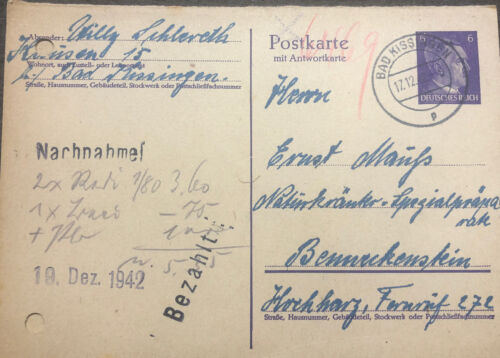 Absender: Willy Schlereth
Krausen 15
Wohnort, auch Zustell- oder Leitpostamt
b/ Bad Kissingen.
Straße, Hausnummer, Gebäudeteil, Stockwerk oder Postschließfachnummer
Postkarte
mit Antwortkarte
6 6
DEUTSCHES REICH
BAD KISSINGEN
17.12.
p
Herrn
Ernst Mauß
Naturkränter-Spezialpräpa
rate
Benneckenstein
Hochharz, Fernruf 272
Straße, Hausnummer, Gebäudeteil, Stockwerk oder Postschließfachnummer
Nachnahme!
2x Radi 1/80 3.60
1x - 75
+ 1
5.
19. Dez. 1942
Bezahlt: